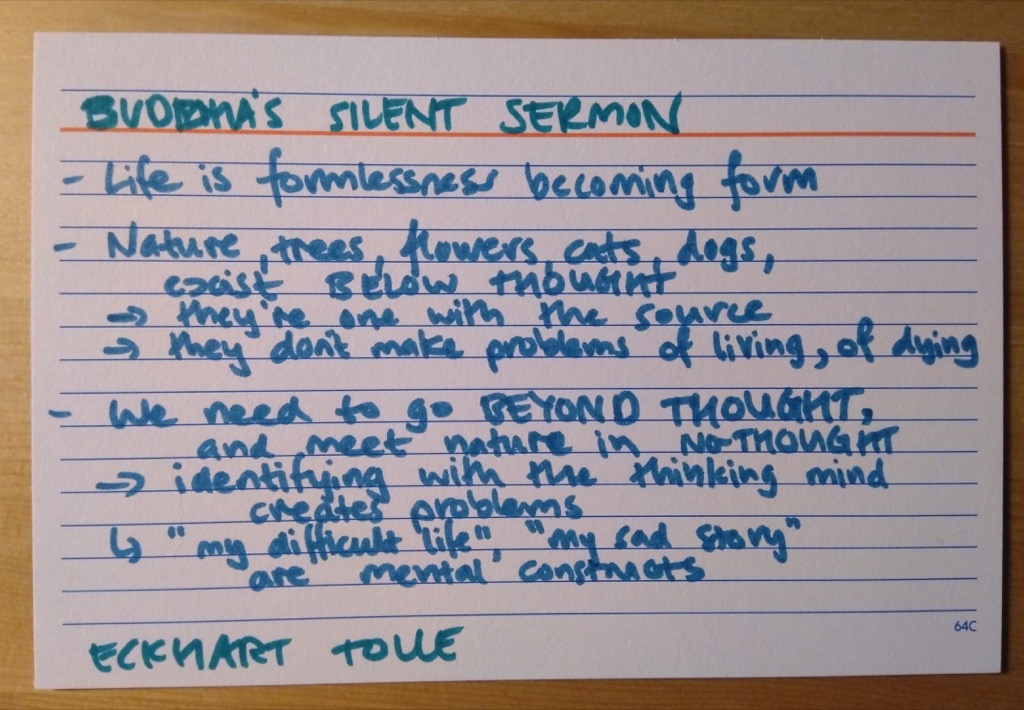 BUDDHA'S SILENT SERMON
- Life is formlessness becoming form
- Nature, trees, flowers, cats, dogs,
exist BELOW THOUGHT
→ they're one with the source
→ they don't make problems of living, of dying
- We need to go BEYOND THOUGHT,
and meet nature in NO-THOUGHT
→ identifying with the thinking mind
creates problems
↳ "my difficult life", "my sad story"
are mental constructs
64C
ECKHART TOLLE